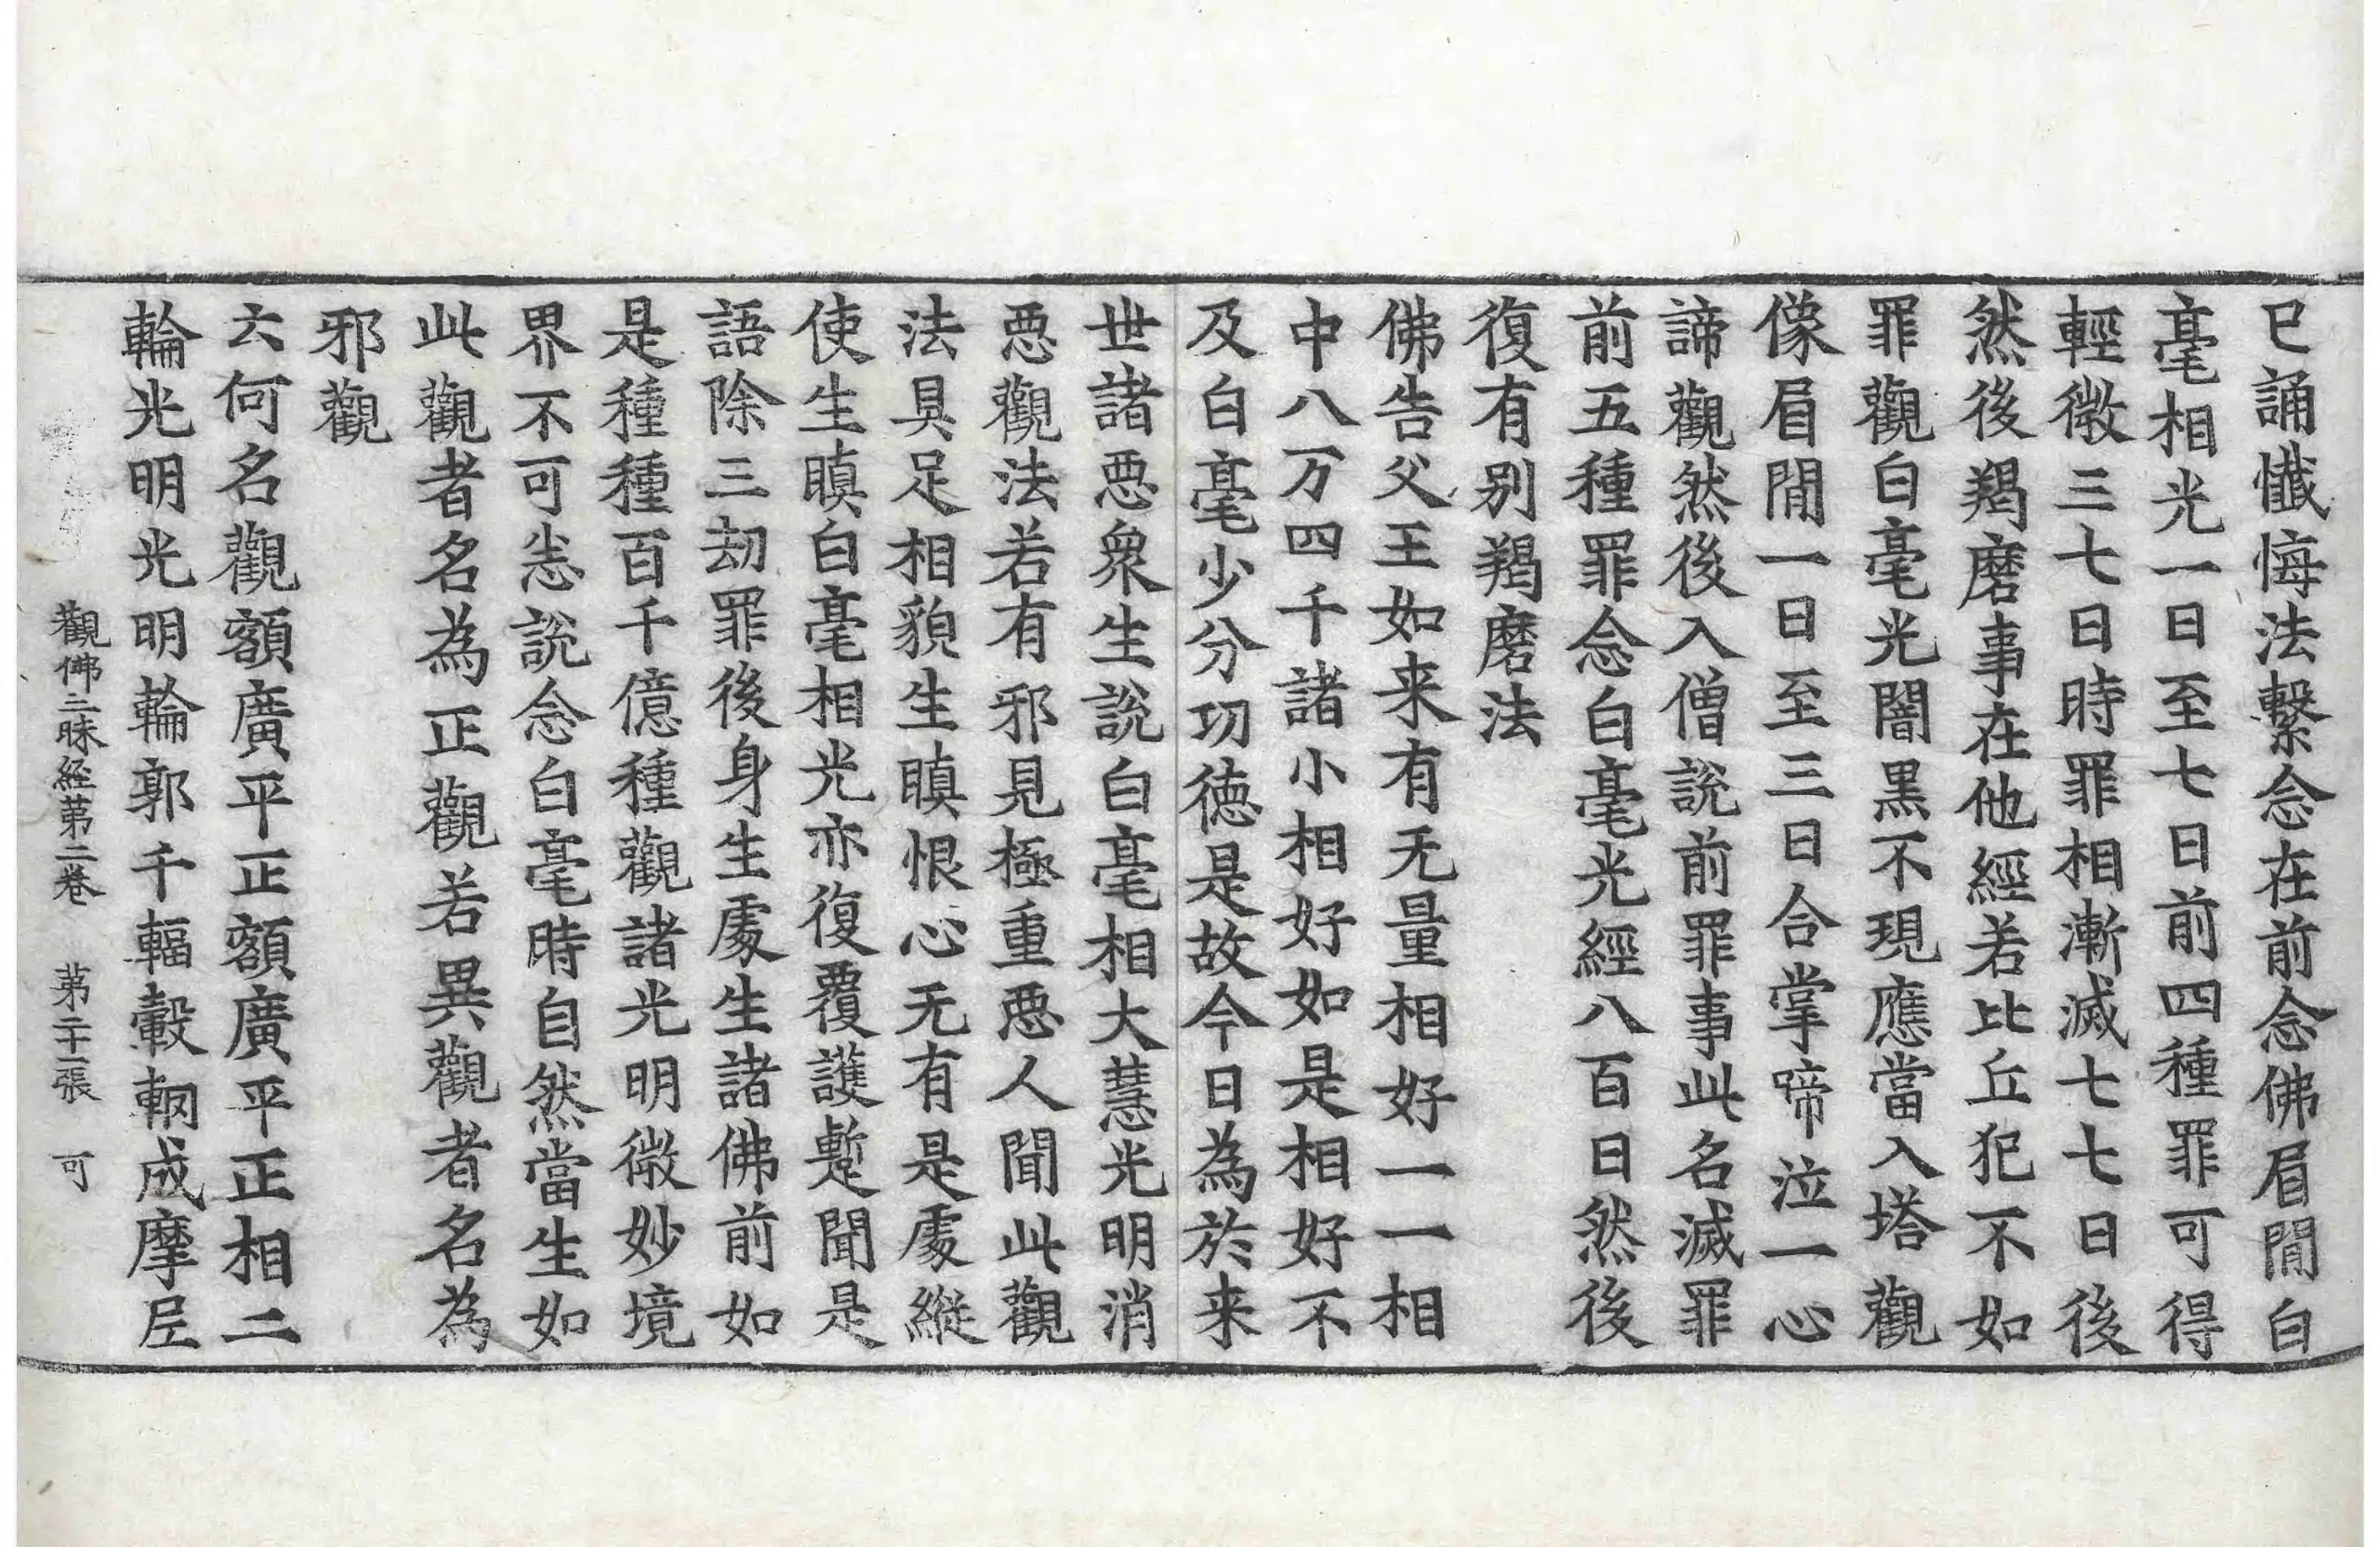 已誦懺悔法繫念在前念佛眉間白
毫相光一日至七日前四種罪可得
輕微三七日時罪相漸滅七七日後
然後羯磨事在他經若比丘犯不如
罪觀白毫光闇黑不現應當入塔觀
像眉間一日至三日合掌啼泣一心
諦觀然後入僧說前罪事此名滅罪
前五種罪念白毫光經八百日然後
復有別羯磨法
佛告父王如来有无量相好一一相
中八万四千諸小相好如是相好不
及白毫少分功德是故今日為於来
世諸惡衆生說白毫相大慧光明消
惡觀法若有邪見極重惡人聞此觀
法具足相貌生瞋恨心无有是處縱
使生瞋白毫相光亦復覆護蹔聞是
語除三劫罪後身生處生諸佛前如
是種種百千億種觀諸光明微妙境
界不可悉說念白毫時自然當生如
此觀者名為正觀若異觀者名為
邪觀
云何名觀額廣平正額廣平正相二
輪光明光明輪郭千輻轂輞成摩尼
觀佛三昧経第二卷　第二十一張　可